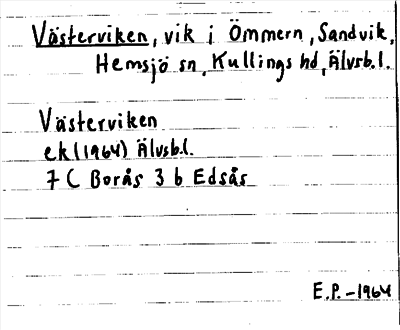 Västerviken, vik i Ömmern, Sandvik,
Hemsjö sn, Kullings hd, Älvsb.l.
Västerviken
ek (1964) Älvsb.l.
7 C Borås 3 b Edsås
E.P.-1964